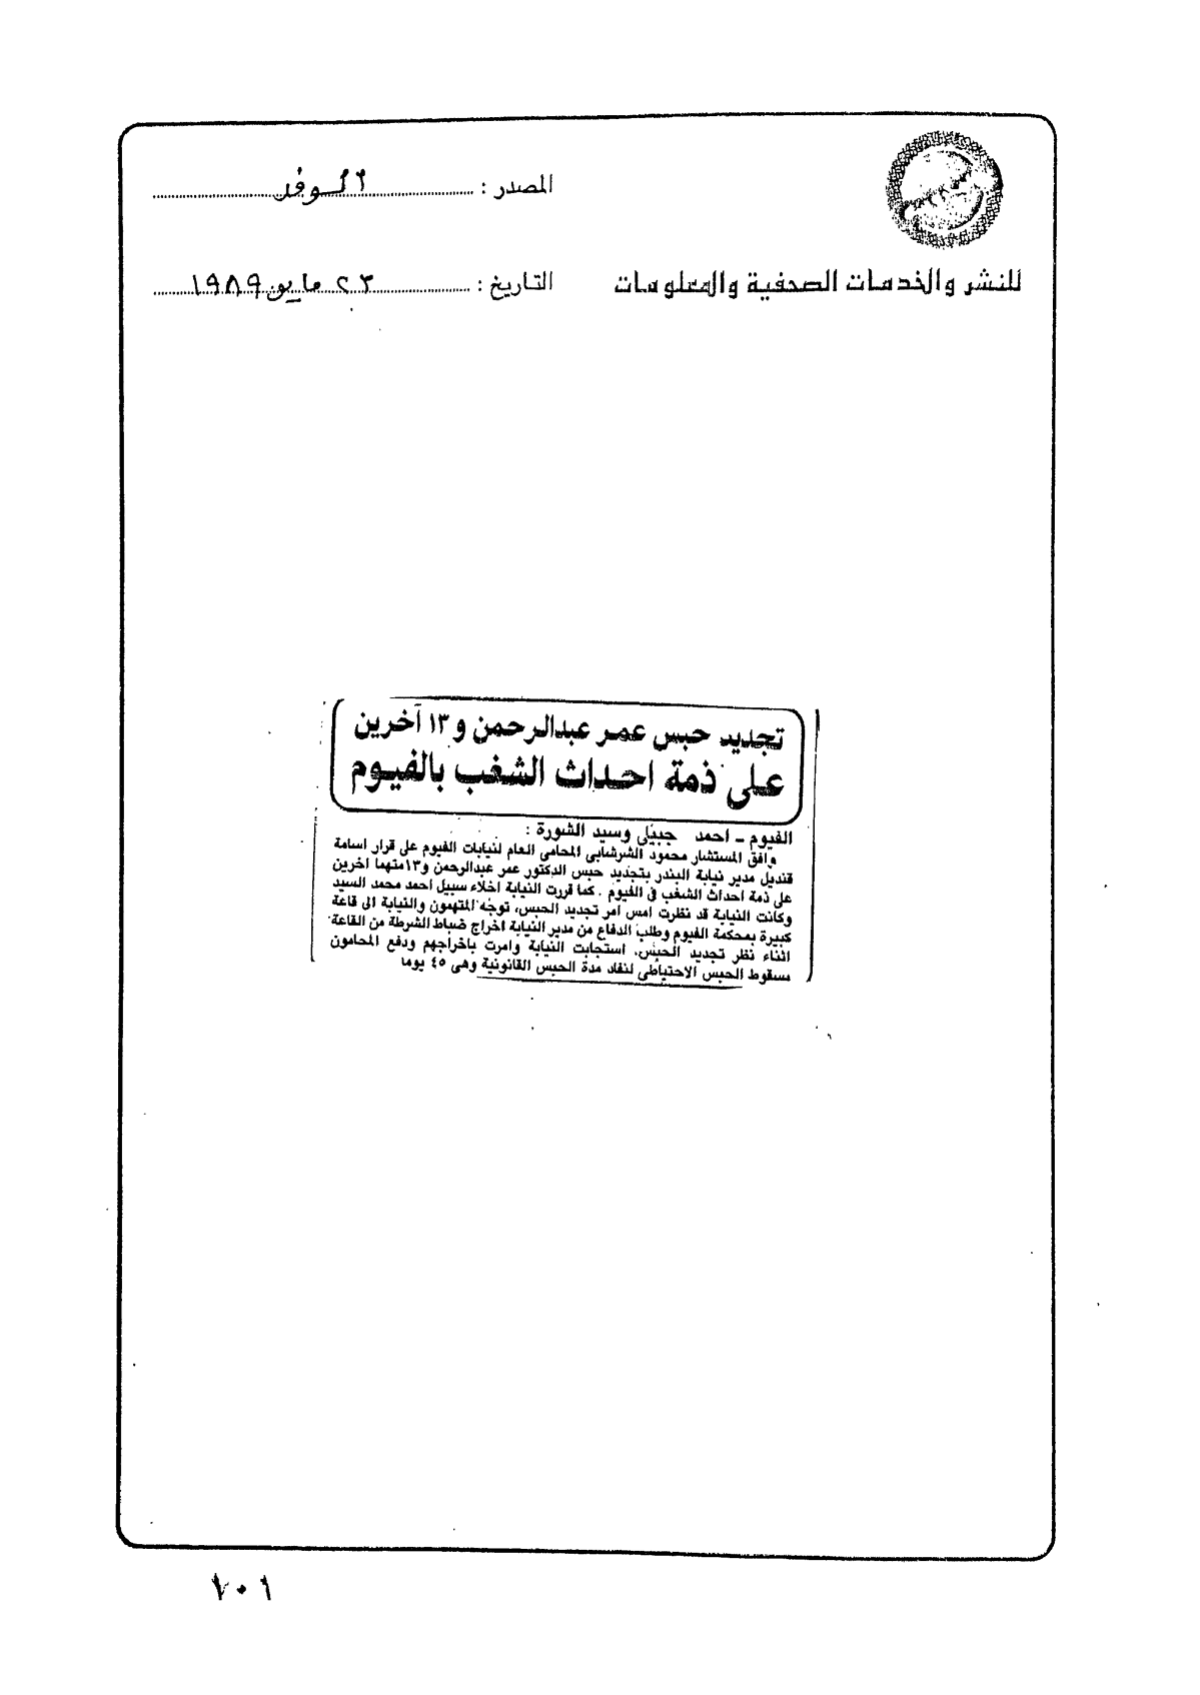 المصدر : الوفد
للنشر والخدمات الصحفية والمعلومات
التاريخ : ٢٣ مايو ١٩٨٩
تجديد حبس عمر عبدالرحمن و١٣ آخرين
على ذمة احداث الشغب بالفيوم
الفيوم ـ احمد جبيلى وسيد الشورة :
وافق المستشار محمود الشرشابى المحامى العام لنيابات الفيوم على قرار اسامة
قنديل مدير نيابة البندر بتجديد حبس الدكتور عمر عبدالرحمن و١٣متهما اخرين
على ذمة احداث الشغب فى الفيوم . كما قررت النيابة اخلاء سبيل احمد محمد السيد
وكانت النيابة قد نظرت امس امر تجديد الحبس، توجه المتهمون والنيابة الى قاعة
كبيرة بمحكمة الفيوم وطلب الدفاع من مدير النيابة اخراج ضباط الشرطة من القاعة
اثناء نظر تجديد الحبس. استجابت النيابة وامرت باخراجهم ودفع المحامون
بسقوط الحبس الاحتياطى لنفاد مدة الحبس القانونية وهى ٤٥ يوما